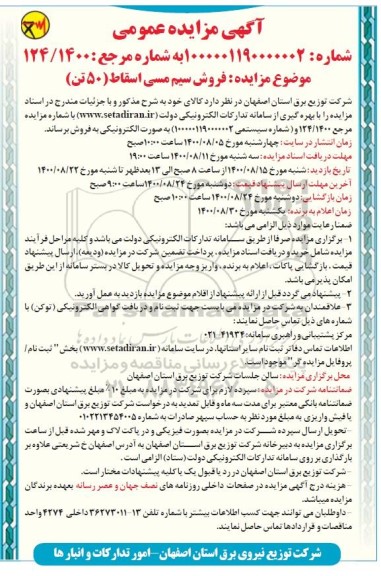 آگهی مزایده عمومی
شماره: ۱۰۰۰۰۰۱۱۹۰۰۰۰۰۰۲ به شماره مرجع: ۱۲۴/۱۴۰۰
موضوع مزایده: فروش سیم مسی اسقاط (۵۰ تن)
شرکت توزیع برق استان اصفهان در نظر دارد کالای خود به شرح مذکور و با جزئیات مندرج در اسناد
مزایده را با بهره گیری از سامانه تدارکات الکترونیکی دولت (www.setadiran.ir) با شماره مزایده
مرجع ۱۲۴/۱۴۰۰ و (شماره سیستمی ۱۰۰۰۰۰۱۱۹۰۰۰۰۰۰۲) به صورت الکترونیکی به فروش برساند.
زمان انتشار در سایت: چهارشنبه مورخ ۱۴۰۰/۰۸/۰۵ ساعت ۱۰:۰۰ صبح
مهلت دریافت اسناد مزایده: سه شنبه مورخ ۱۴۰۰/۰۸/۱۱ ساعت ۱۹:۰۰
تاریخ بازدید: شنبه مورخ ۱۴۰۰/۰۸/۱۵ از ساعت ۸ صبح الی ۱۳ بعدظهر تا شنبه مورخ ۱۴۰۰/۰۸/۲۲
آخرین مهلت ارسال پیشنهاد قیمت: دوشنبه مورخ ۱۴۰۰/۰۸/۲۴ ساعت ۹:۰۰ صبح
زمان بازگشایی: دوشنبه مورخ ۱۴۰۰/۰۸/۲۴ ساعت ۱۰:۰۰ صبح
زمان اعلام به برنده: یکشنبه مورخ ۱۴۰۰/۰۸/۳۰
ضمنا رعایت موارد ذیل الزامی می باشد:
۱- برگزاری مزایده صرفا از طریق سامانه تدارکات الکترونیکی دولت می باشد و کلیه مراحل فرآیند
مزایده شامل خرید و دریافت اسناد مزایده، پرداخت تضمین شرکت در مزایده (ودیعه)، ارسال پیشنهاد
قیمت، بازگشایی پاکات، اعلام به برنده، واریز وجه مزایده و تحویل کالا در بستر سامانه از این طریق
امکان پذیر می باشد.
۲- پیشنهاد می گردد قبل از ارائه پیشنهاد از اقلام موضوع مزایده بازدید به عمل آورید.
۳- علاقمندان به شرکت در مزایده می بایست جهت ثبت نام و دریافت گواهی الکترونیکی (توکن) با
شماره های ذیل تماس حاصل نمایند:
مرکز پشتیبانی و راهبری سامانه: ۴۱۹۳۴-۰۲۱
اطلاعات تماس دفاتر ثبت نام سایر استانها، در سایت سامانه (www.setadiran.ir) بخش "ثبت نام/
پروفایل مزایده گر" موجود است.
محل برگزاری مزایده: سالن جلسات شرکت توزیع برق استان اصفهان
ضمانتنامه شرکت در مزایده: سپرده لازم برای شرکت در مزایده به مبلغ ۱۰٪ مبلغ پیشنهادی بصورت
ضمانتنامه بانکی معتبر برای مدت سه ماه و قابل تمدید به درخواست شرکت توزیع برق استان اصفهان و
یا فیش واریزی به مبلغ مورد نظر به حساب سپهر صادرات به شماره ۰۱۰۲۲۱۳۴۵۴۰۰۵
- تحویل ارسال سپرده شرکت در مزایده بصورت فیزیکی و در پاکت لاک و مهر شده قبل از ساعت
برگزاری مزایده به دبیرخانه شرکت توزیع برق استان اصفهان به آدرس اصفهان خ شریعتی علاوه بر
بارگذاری بر روی سامانه تدارکات الکترونیکی دولت (ستاد) الزامی است.
- شرکت توزیع برق استان اصفهان در رد یا قبول یک یا کلیه پیشنهادات مختار است.
- هزینه درج آگهی مزایده در صفحات داخلی روزنامه های نصف جهان و عصر رسانه بعهده برندگان
مزایده میباشد.
- داوطلبان می توانند جهت کسب اطلاعات بیشتر با شماره تلفن ۱۳-۳۶۲۷۳۰۱۱ داخلی ۴۲۷۴ واحد
مناقصات و قراردادها تماس حاصل نمایند.
شرکت توزیع نیروی برق استان اصفهان - امور تدارکات و انبار ها